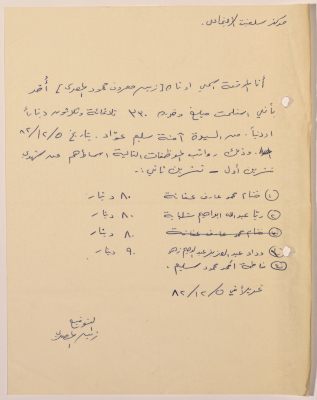 مركز سلفيت الإيجابي.
أنا الموقعة اسمي ادناه [زينب معروف محمود المصري] أُقر
بأنني استلمت مبلغ وقدره ٣٣٠ ثلاثمائة وثلاثون ديناراً
اردنياً. من السيدة آمنة سليم عوّاد. بتاريخ ٨٢/١٢/٥
وذلك رواتب الموظفات التالية اسمائهم عن شهري
تشرين أول – تشرين ثاني:
١) ختام محمد عارف عفانة ٨٠ دينار
٢) رنا عبدالله ابراهيم شلباية ٨٠ دينار
ختام محمد عارف عفانة ٨٠ دينار
٣) وداد عبد العزيز عبدالرحيم ٩٠ دينار
٤) فاطمة أحمد محمود سليم.
تحريراً في ٨٢/١٢/٥
التوقيع
زينب المصري